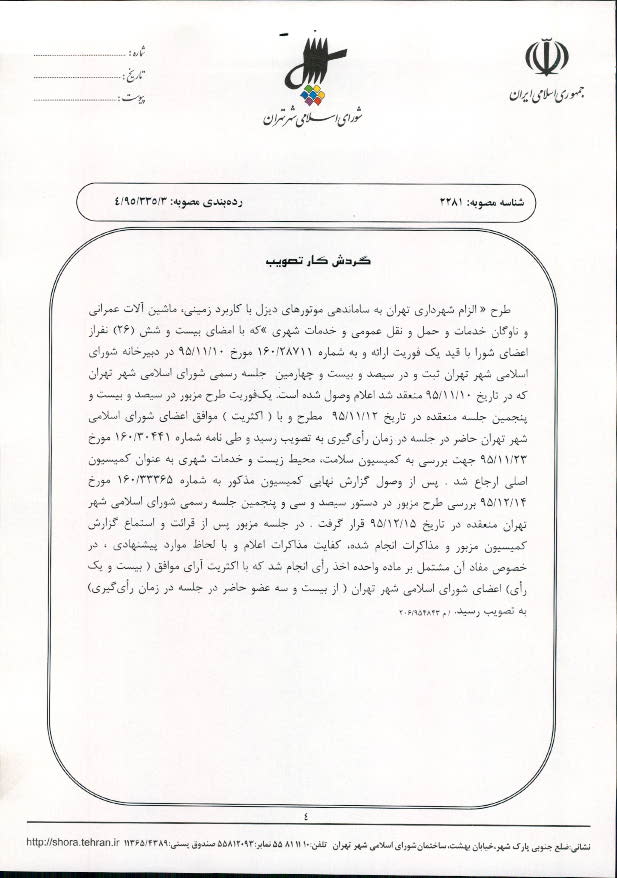 جمهوری اسلامی ایران
شورای اسلامی شهر تهران
شماره :
تاریخ :
پیوست :
شناسه مصوبه: ۲۲۸۱
رده‌بندی مصوبه: ۴/۹۵/۳۳۵/۳
گردش کار تصویب
طرح « الزام شهرداری تهران به ساماندهی موتورهای دیزل با کاربرد زمینی، ماشین آلات عمرانی
و ناوگان خدمات و حمل و نقل عمومی و خدمات شهری »که با امضای بیست و شش (۲۶) نفراز
اعضای شورا با قید یک فوریت ارائه و به شماره ۱۶۰/۲۸۷۱۱ مورخ ۹۵/۱۱/۱۰ در دبیرخانه شورای
اسلامی شهر تهران ثبت و در سیصد و بیست و چهارمین جلسه رسمی شورای اسلامی شهر تهران
که در تاریخ ۹۵/۱۱/۱۰ منعقد شد اعلام وصول شده است. یک‌فوریت طرح مزبور در سیصد و بیست و
پنجمین جلسه منعقده در تاریخ ۹۵/۱۱/۱۲ مطرح و با ( اکثریت ) موافق اعضای شورای اسلامی
شهر تهران حاضر در جلسه در زمان رأی‌گیری به تصویب رسید و طی نامه شماره ۱۶۰/۳۰۴۴۱ مورخ
۹۵/۱۱/۲۳ جهت بررسی به کمیسیون سلامت، محیط زیست و خدمات شهری به عنوان کمیسیون
اصلی ارجاع شد . پس از وصول گزارش نهایی کمیسیون مذکور به شماره ۱۶۰/۳۳۳۶۵ مورخ
۹۵/۱۲/۱۴ بررسی طرح مزبور در دستور سیصد و سی و پنجمین جلسه رسمی شورای اسلامی شهر
تهران منعقده در تاریخ ۹۵/۱۲/۱۵ قرار گرفت . در جلسه مزبور پس از قرائت و استماع گزارش
کمیسیون مزبور و مذاکرات انجام شده، کفایت مذاکرات اعلام و با لحاظ موارد پیشنهادی ، در
خصوص مفاد آن مشتمل بر ماده واحده اخذ رأی انجام شد که با اکثریت آرای موافق ( بیست و یک
رأی) اعضای شورای اسلامی شهر تهران ( از بیست و سه عضو حاضر در جلسه در زمان رأی‌گیری)
به تصویب رسید. / م ۲۰۶/۹۵۴۸۴۳
٤
نشانی:ضلع جنوبی پارک شهر،خیابان بهشت،ساختمان‌شورای اسلامی شهر تهران تلفن:۱۰ ۱۱ ۸۱ ۵۵ نمابر:۵۵۸۱۲۰۹۳ صندوق پستی:۱۱۳۶۵/۴۳۸۹ http://shora.tehran.ir